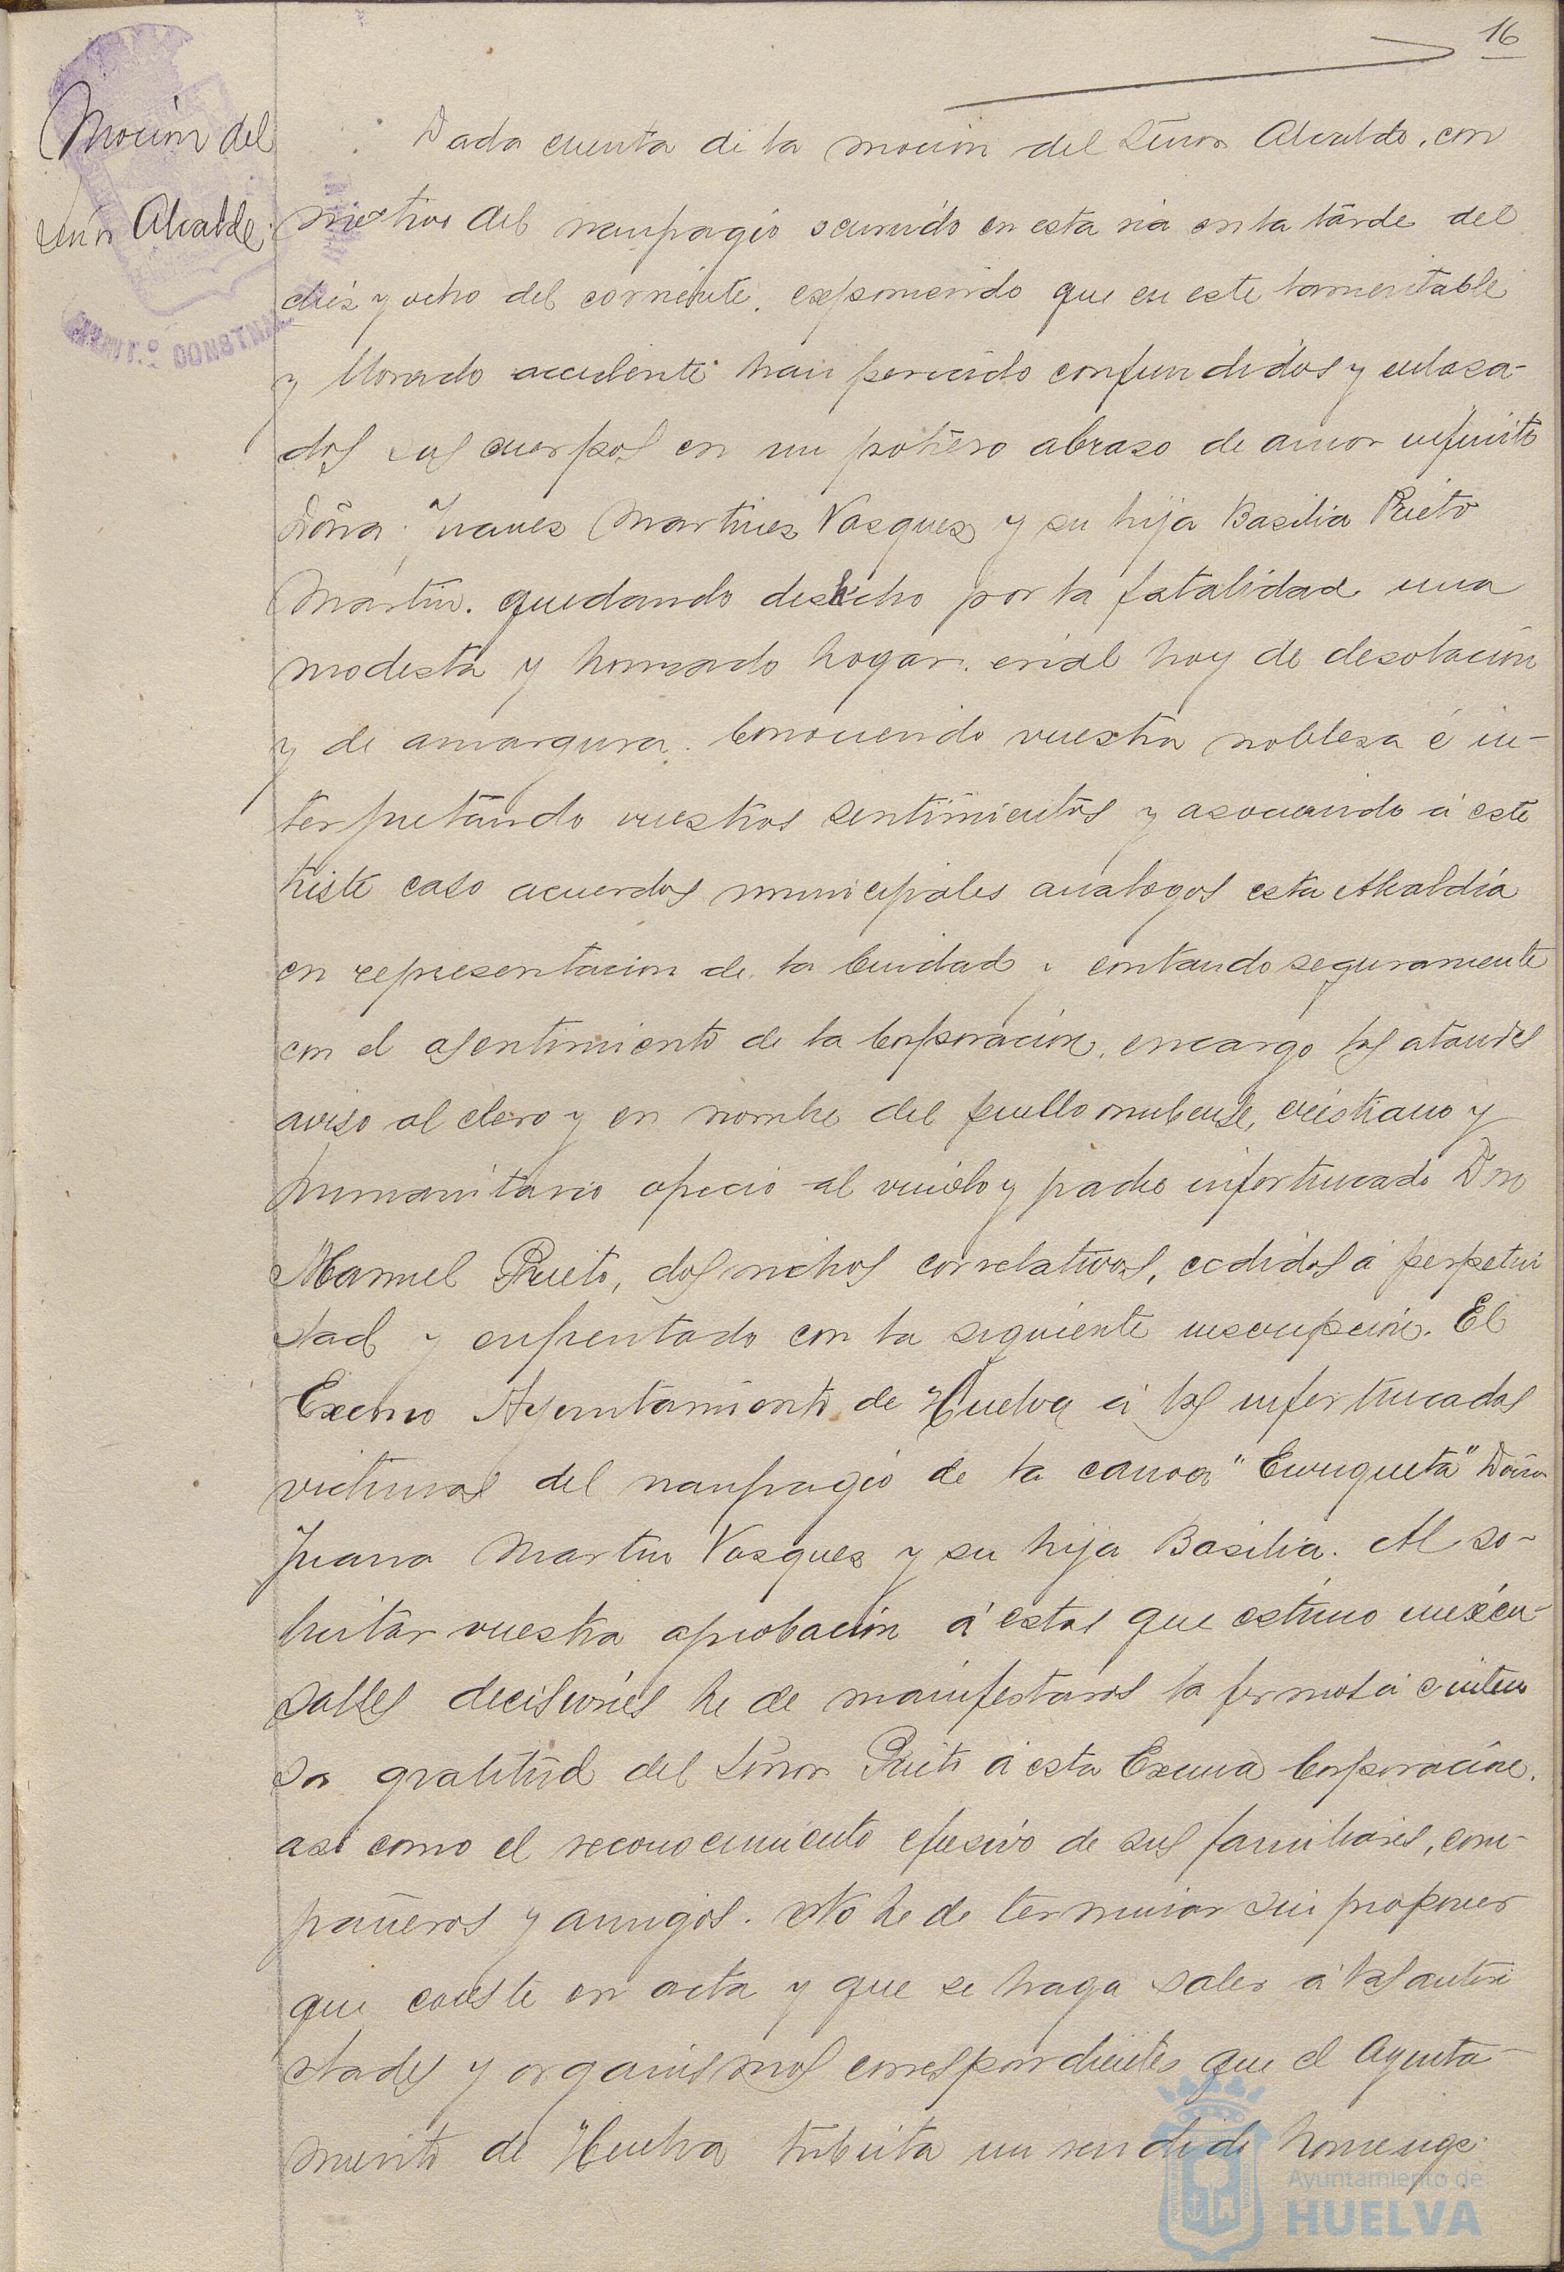 16
Moción del
Señor Alcalde.
Dada cuenta de la moción del Señor Alcalde, con
motivo del naufragio ocurrido en esta ria en la tarde del
diez y ocho del corriente, exponiendo que en este lamentable
y llorado accidente han perecido confundidos y enlaza-
dos sus cuerpos en un postrero abrazo de amor infinito
Doña Juana Martinez Vasquez y su hija Basilia Prieto
Martin, quedando deshecho por la fatalidad una
modesta y honrado hogar, erial hoy de desolación
y de amargura. Conociendo vuestra nobleza é in-
terpretando vuestros sentimientos y asociando á este
triste caso acuerdos municipales analogos esta Alcaldía
en representacion de la Ciudad y contando seguramente
con el asentimiento de la Corporación, encargo los ataudes
aviso al clero y en nombre del pueblo onubense, cristiano y
humanitario ofrecio al viudo y padre infortunado Don
Manuel Prieto, dos nichos correlativos, cedidos á perpetui
dad y enfrentado con la siguiente inscripción. El
Excmo Ayuntamiento de Huelva á las infortunadas
victimas del naufragio de la canoa "Enriqueta" Doña
Juana Martin Vasquez y su hija Basilia. Al so-
licitar vuestra aprobación á estas que estimo inexcu-
sables decisiones he de manifestaros la fervorosa é inten
sa gratitud del Señor Prieto á esta Excma Corporación,
asi como el reconocimiento efusivo de sus familiares, com-
pañeros y amigos. No he de terminar sin proponer
que conste en acta y que se haga saber á las autori
dades y organismos correspondientes que el Ayunta-
miento de Huelva tributa un rendido homenage
AYUNT.º CONSTNAL
Ayuntamiento de
HUELVA